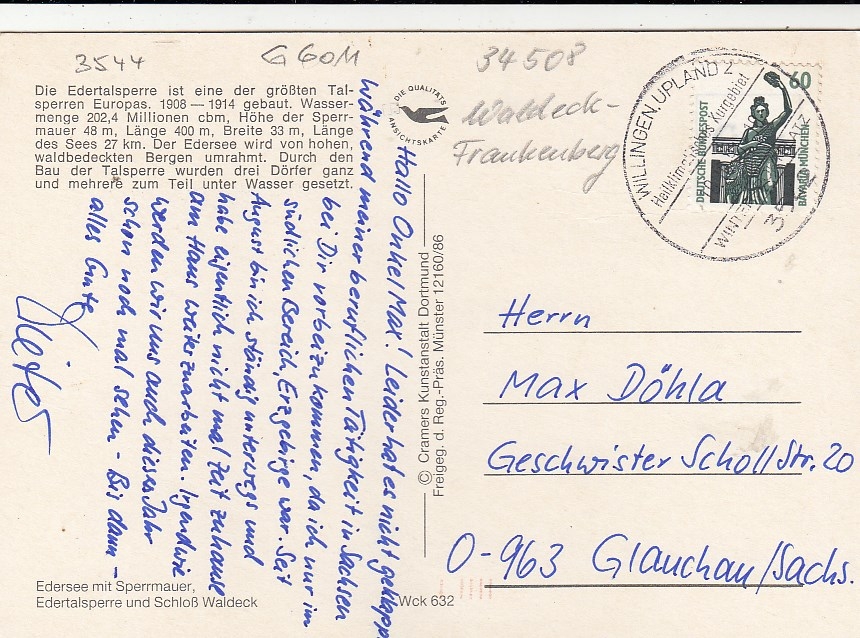 3544
G 60M
34508
Waldeck-
Frankenberg
Die Edertalsperre ist eine der größten Tal-
sperren Europas. 1908 — 1914 gebaut. Wasser-
menge 202,4 Millionen cbm, Höhe der Sperr-
mauer 48 m, Länge 400 m, Breite 33 m, Länge
des Sees 27 km. Der Edersee wird von hohen,
waldbedeckten Bergen umrahmt. Durch den
Bau der Talsperre wurden drei Dörfer ganz
und mehrere zum Teil unter Wasser gesetzt.
DIE QUALITÄTS
ANSICHTSKARTE
WILLINGEN, UPLAND 2
Heilklimatisches Kurgebiet
60
DEUTSCHE BUNDESPOST
BAVARIA MÜNCHEN
Hallo Onkel Max! Leider hat es nicht geklappt
während meiner beruflichen Tätigkeit in Sachsen
bei Dir vorbeizukommen, da ich nur im
südlichen Bereich, Erzgebirge war. Seit
August bin ich ständig unterwegs und
habe eigentlich nicht mal Zeit zuhause
am Haus weiterzuarbeiten. Irgendwie
werden wir uns auch dieses Jahr
schon noch mal sehen - Bis dann -
alles Gute
Dieter
© Cramers Kunstanstalt Dortmund
Freigeg. d. Reg.-Präs. Münster 12160/86
Herrn
Max Döhla
Geschwister Scholl Str. 20
O-963 Glauchau/Sachs.
Edersee mit Sperrmauer,
Edertalsperre und Schloß Waldeck
Wck 632